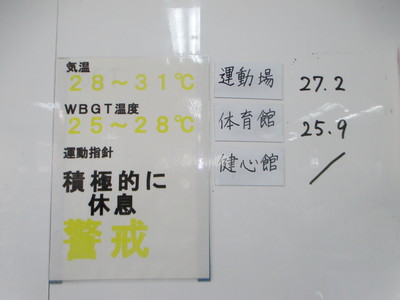 気温
28～31℃
WBGT温度
25～28℃
運動指針
積極的に
休息
警戒
運動場 27.2
体育館 25.9
健心館 /